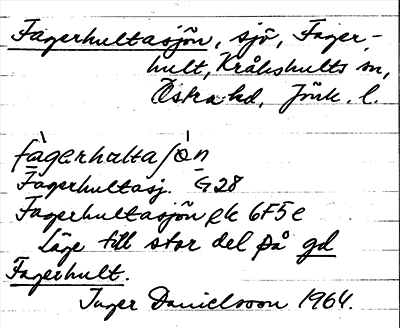 Fagerhultasjön, sjö, Fager-
hult, Kråkshults sn,
Östra hd, Jönk. l.
fàgerhulta/ʃö́n
Fagerhultasj. G28
Fagerhultasjön ek 6F5e
Läge till stor del på gd
Fagerhult.
Inger Danielsson 1964.